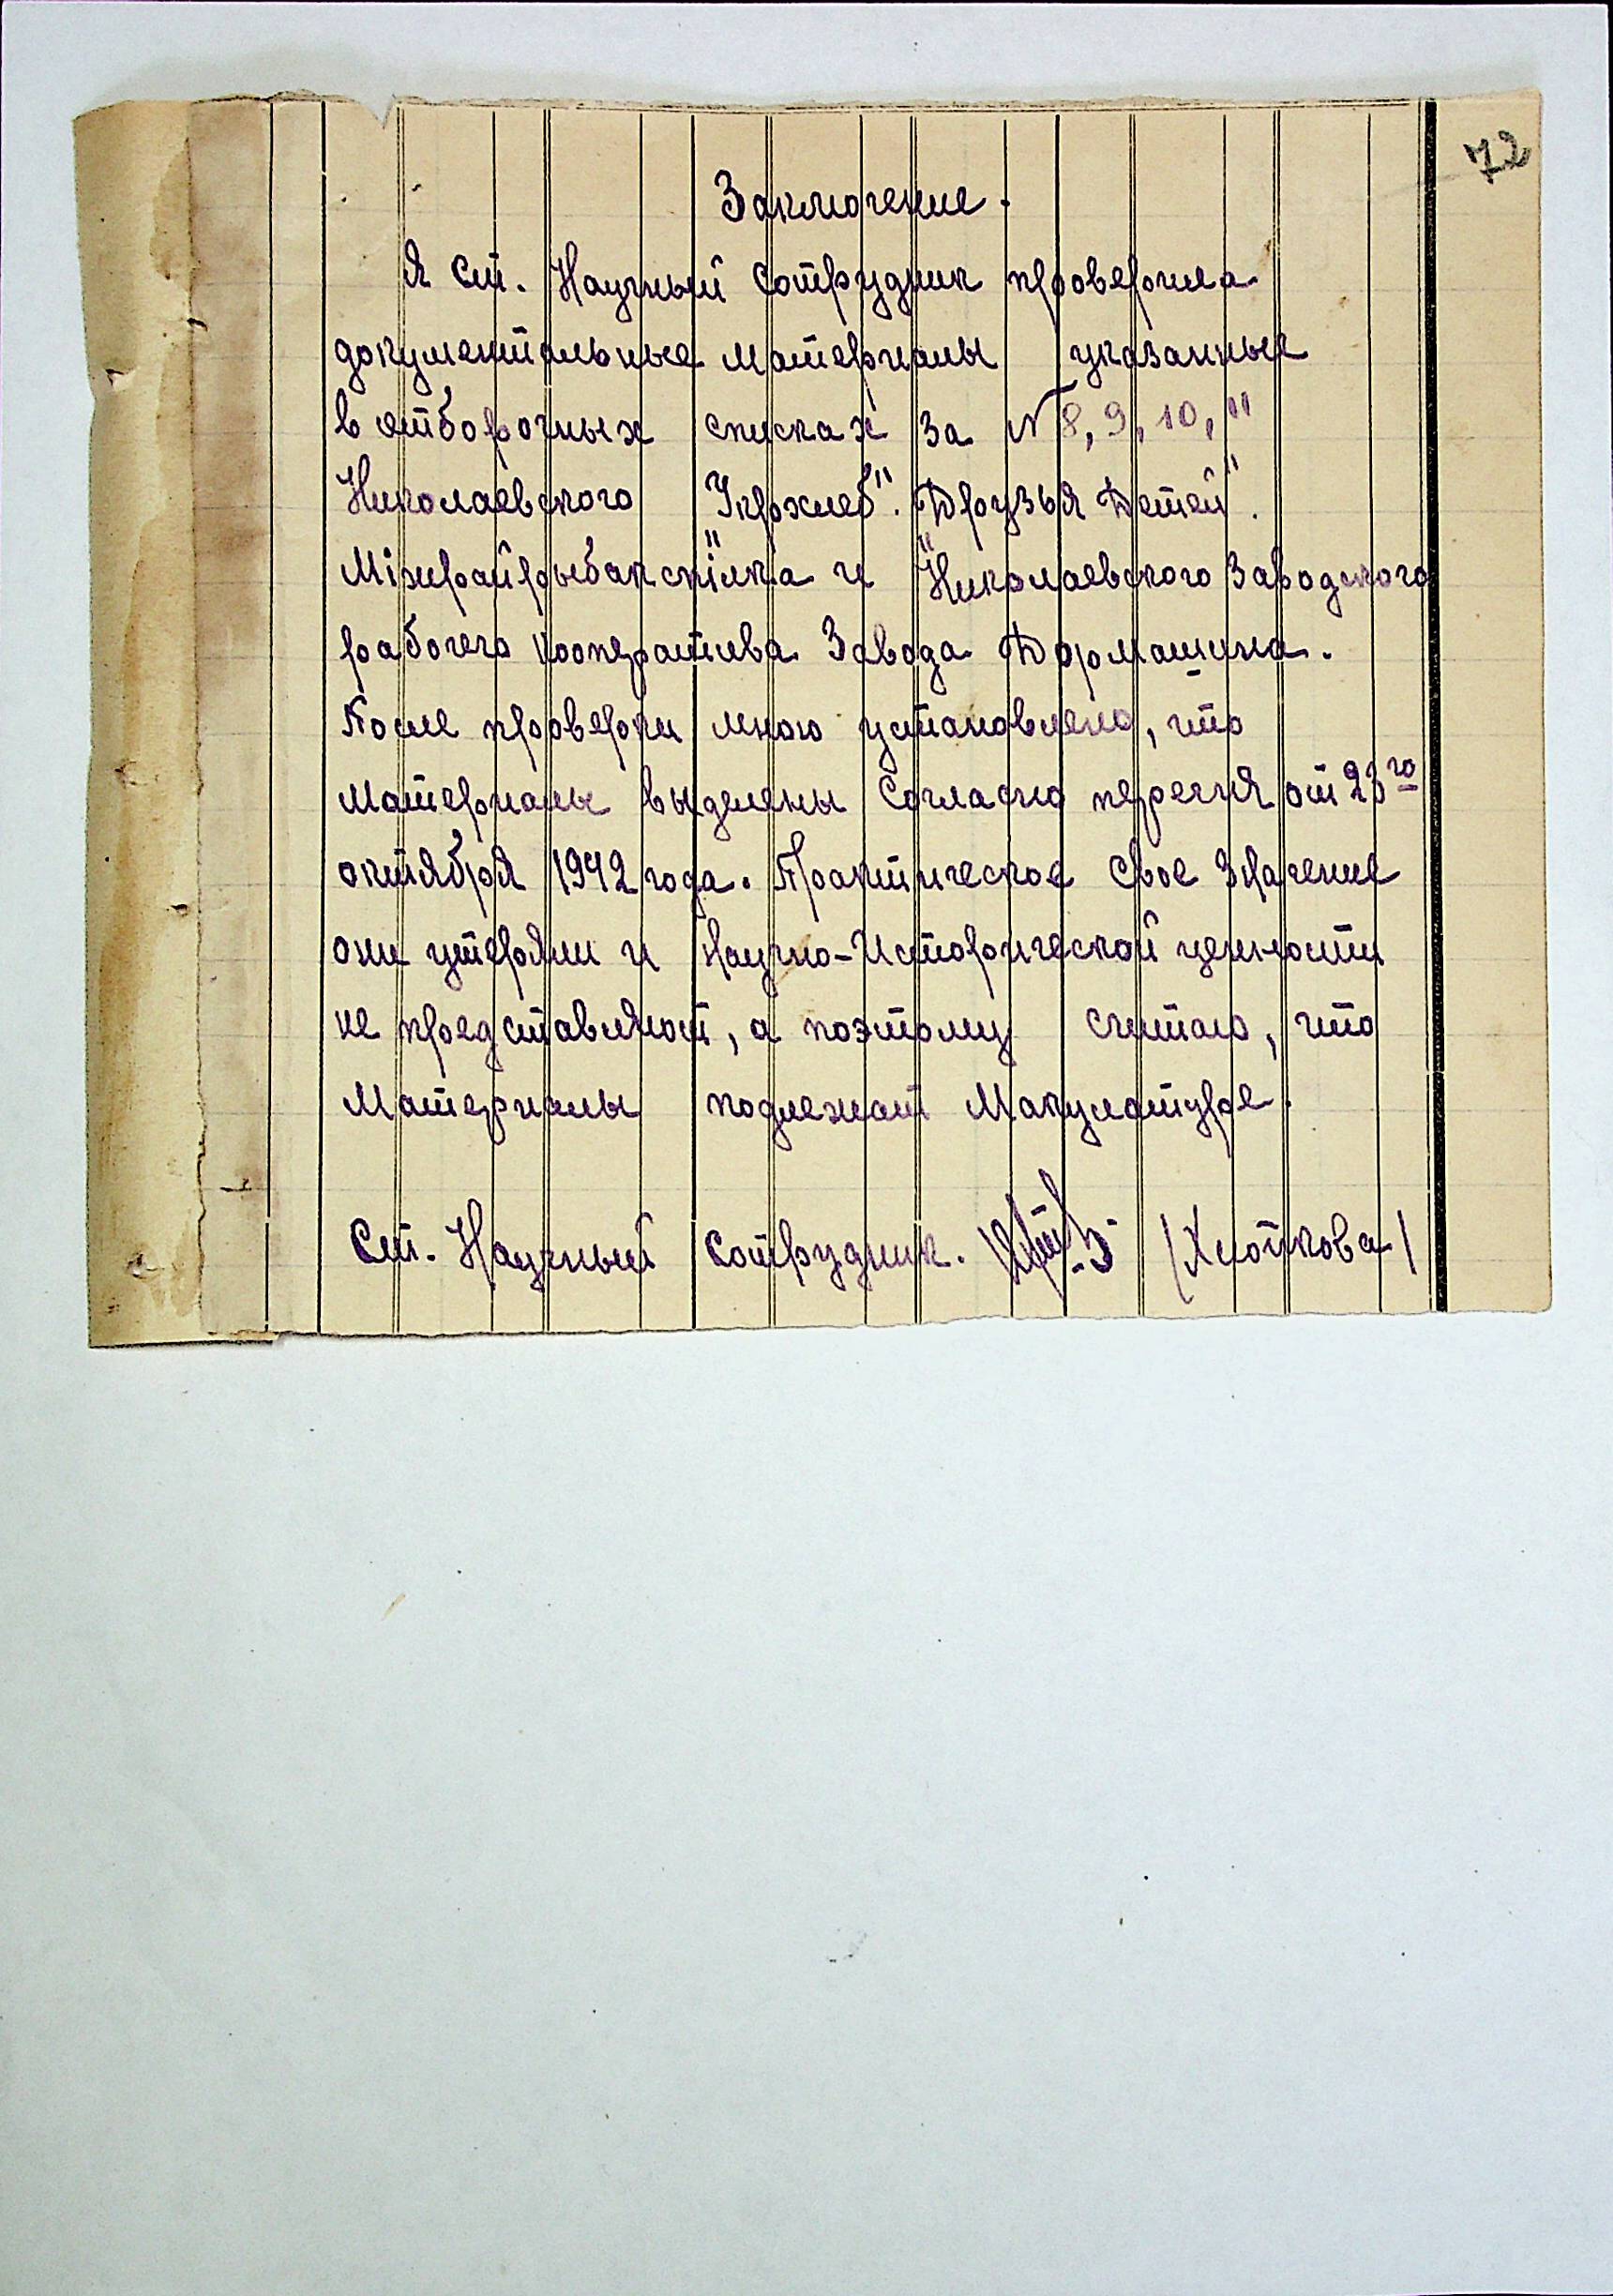 72
Заключение.
Я ст. Научный Сотрудник проверила
документальные материалы указанные
в отборочных списках за № 8, 9, 10, 11
Николаевского "Укрхлеб". Друзья Детей".
"Міжрайрыбакспілка и "Николаевского Заводского
рабочего кооператива Завода Дормашина.
После проверки мною установлено, что
Материалы выделены Согласно перечня от 23го
октября 1942 года. Практическое свое Значение
они утеряли и Научно-Исторической ценности
не представляют, а поэтому считаю, что
Материалы подлежат Макулатуре.
Ст. Научный Сотрудник. /Хлопкова/